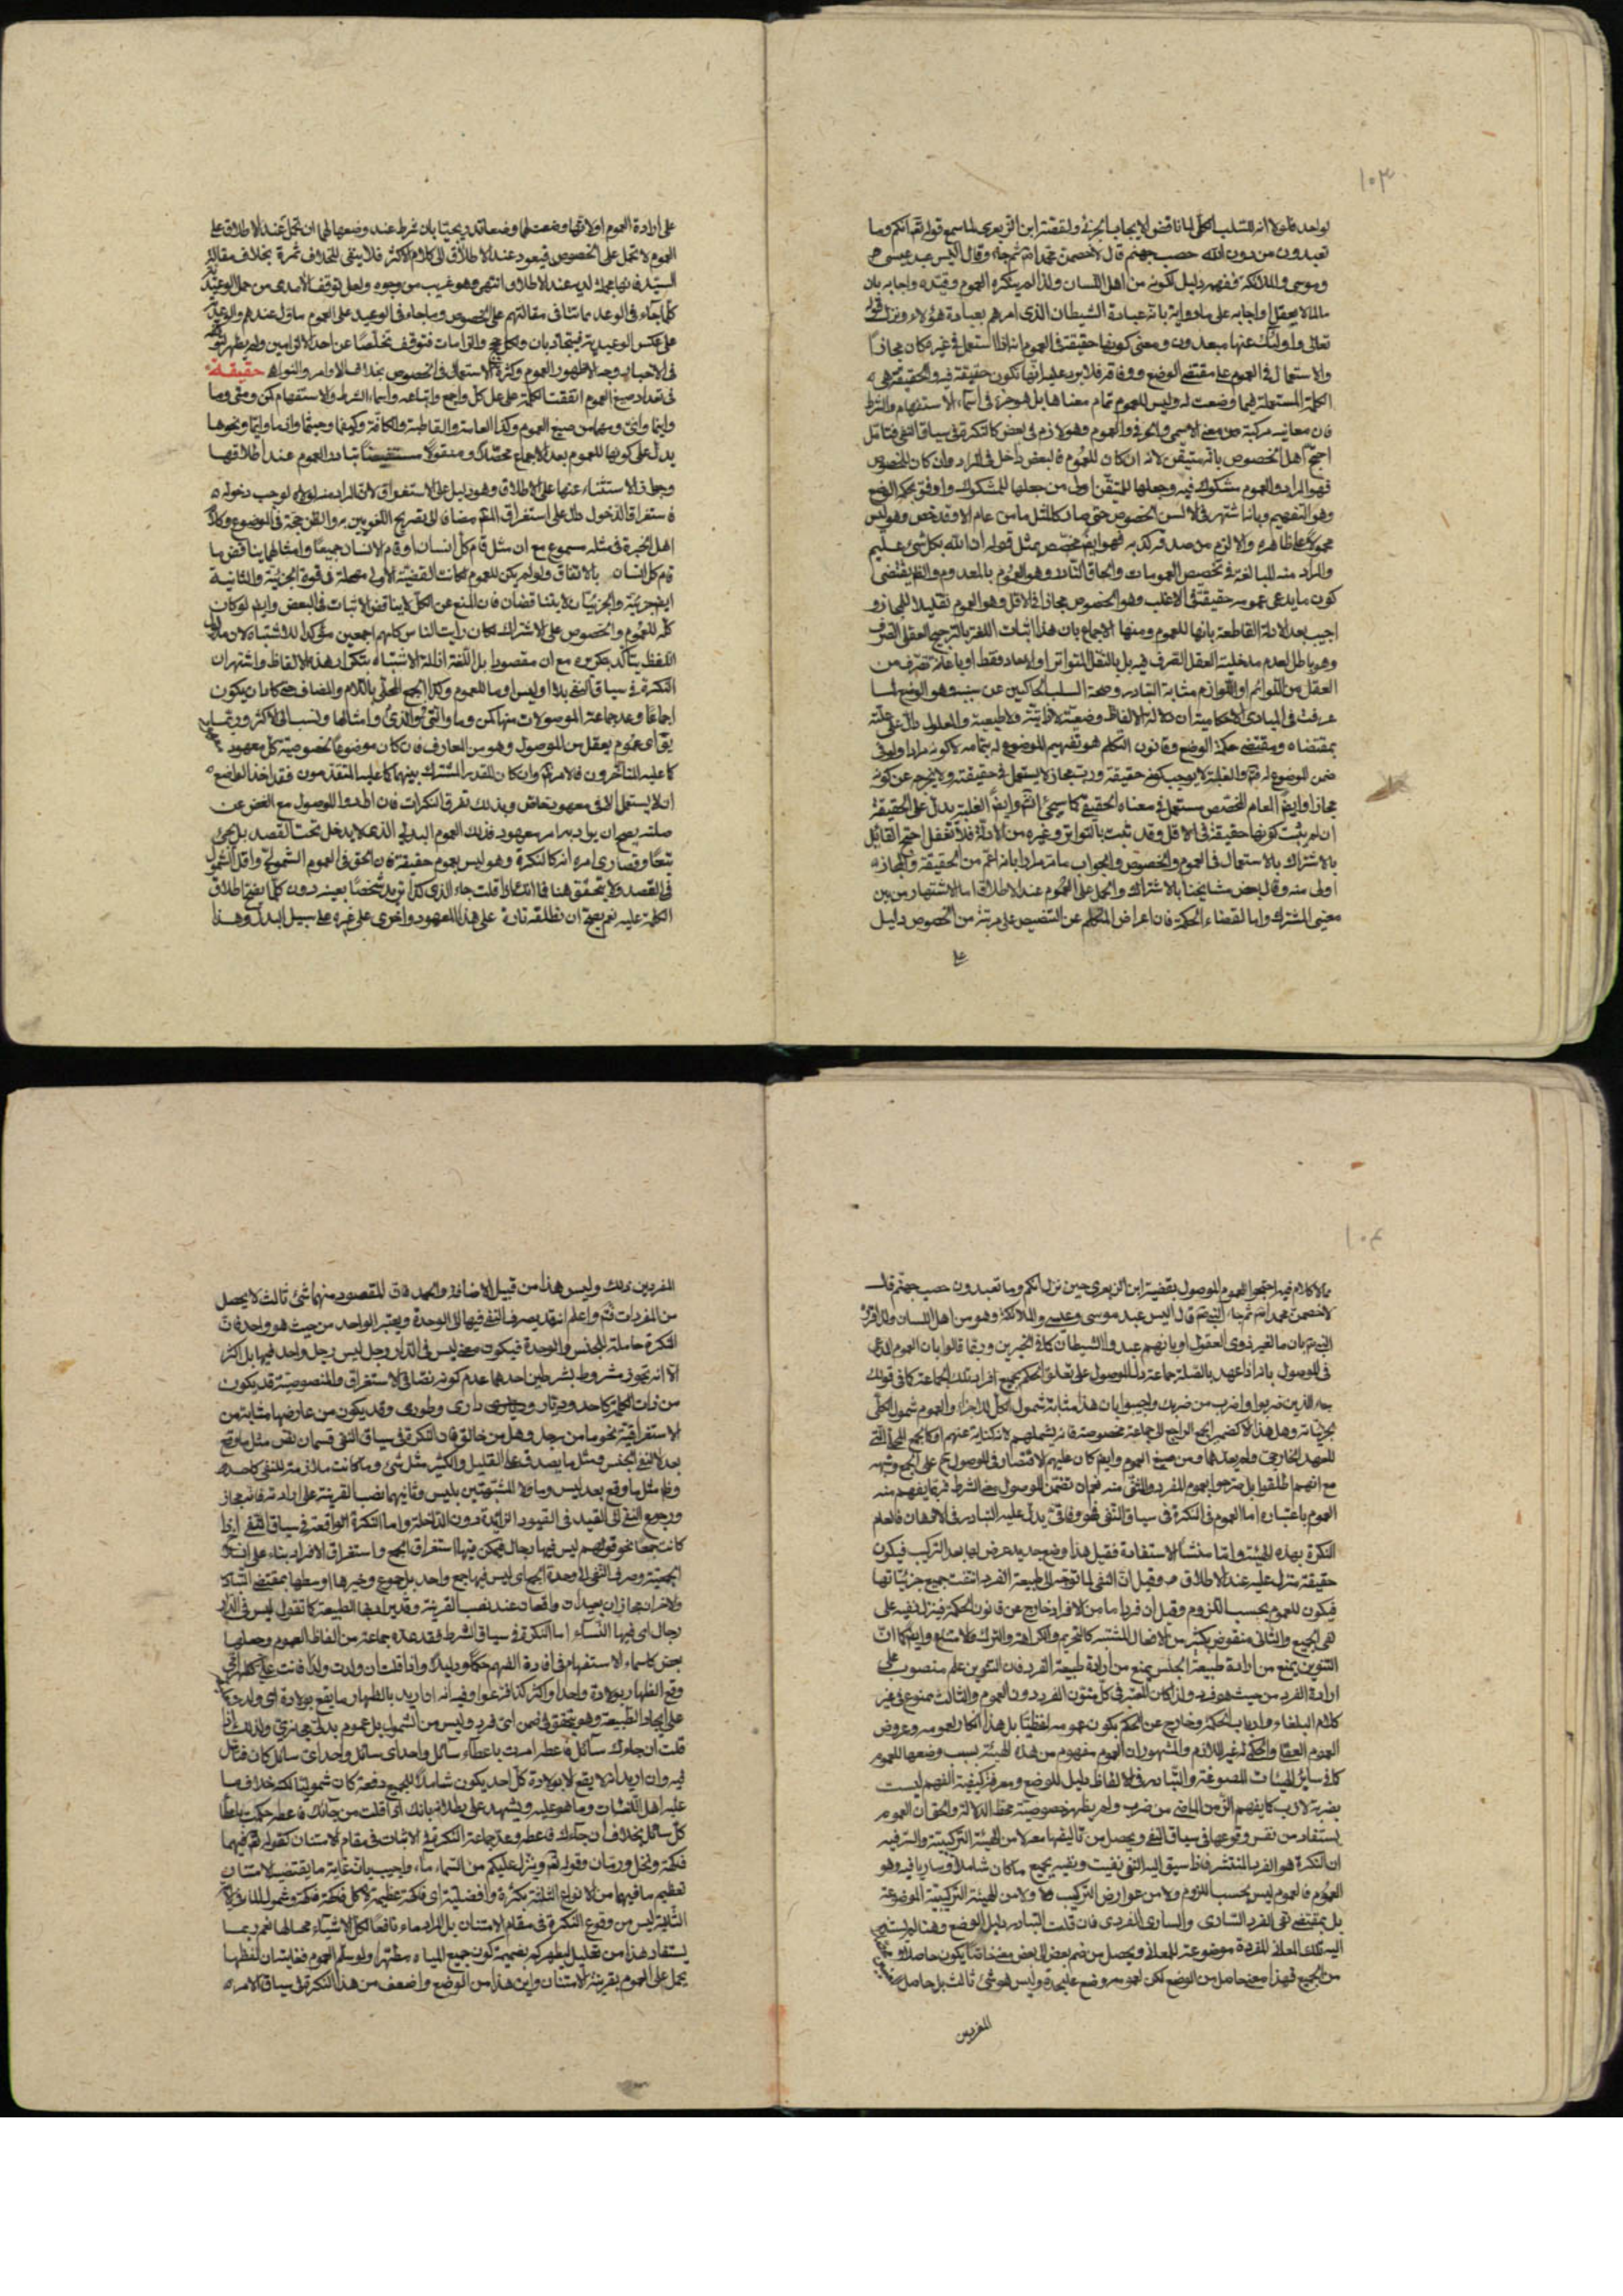 ١٠٣
لواحد فلولا انه للسلب الكلى لما ناقض الايجاب الجزئى ولقصة ابن الزبعرى لما سمع قوله تعالى انكم وما
تعبدون من دون الله حصب جهنم قال لاخصمن محمدا ثم جاء وقال اليس عبد عيسى
وموسى والملائكة ففهمه دليل لكونه من اهل اللسان ولذا لم ينكره العموم وقيده واجابه بان
ما لما لا يعقل او اجابه على ما رواية بانه عبادة الشيطان الذى امرهم بعبادة هؤلاء ونزل قوله
تعالى اولئك عنها مبعدون ومعنى كونها حقيقة فى العموم انها اذا استعمل فى غيره كان مجازا
والاستعمال فى العموم على مقتضى الوضع ووفاقه فلا يرد عليه انها تكون حقيقة فيه والحقيقة هى
الكلمة المستعملة فيما وضعت له وليس للعموم تمام معناها بل هو جزء فى اسماء الاستفهام والشرط
فان معانيه مركبة من معنى الاسمى والحرفى والعموم وهو لازم فى بعض كالنكرة فى سياق النفى فتامل
احتج اهل الخصوص بانه متيقن لانه ان كان للعموم فالبعض داخل فى المراد وان كان للخصوص
فهو المراد والعموم مشكوك فيه وجعلها للمتيقن اولى من جعلها للمشكوك واوفق بحكم الوضع
وهو التفهيم وبانه اشتهر فى الالسن الخصوص حتى صار كالمثل ما من عام الا وقد خص وهو ليس
محمولا على ظاهره والا لزم من صدقه كذبه فهو ايضا مخصص بمثل قوله ان الله بكل شئ عليم
والمراد منه المبالغة فى تخصيص العمومات والحاق النادر وهو العموم بالمعدوم والظاهر يقتضى
كون ما يدعى عمومه حقيقة فى الاغلب وهو الخصوص مجازا فى الاقل وهو العموم تقليلا للمجاز و
اجيب بعد الادلة القاطعة بانها للعموم ومنها الاجماع بان هذا اثبات اللغة بالترجيح العقلى الصرف
وهو باطل لعدم مدخلية العقل الصرف فيه بل بالنقل المتواتر او الاحاد فقط او باعانة تصرف من
العقل من اللوائم او اللوازم مثابة التبادر وصحة السلب الحاكيين عن سببه وهو الوضع لما
عرفت فى المبادى الاحكامية ان دلالة الالفاظ وضعية لا ذاتية ولا طبيعية والمعلول دال على علته
بمقتضاه ومقتضى حكمة الوضع وقانون التكلم هو تفهيم الموضوع له بتمامه لا كونه مرادا ولو فى
ضمن الموضوع له ثم والغلبة لا يوجب كونه حقيقة ورب مجاز لا يستعمل فى حقيقته ولا يخرجه عن كونه
مجازا وايضا العام المخصص مستعمل فى معناه الحقيقى كما سيجئ انتهى وايضا الغلبة يدل على الحقيقة
ان لم يثبت كونها حقيقة فى الاقل وقد ثبت بالتواتر وغيره من الادلة فلا تغفل احتج القائل
بالاشتراك بالاستعمال فى العموم والخصوص والجواب ما مر مرارا بانه اعم من الحقيقة والمجاز
اولى منه وقال بعض مشايخنا بالاشتراك والحمل على العموم عند الاطلاق اما لاشتهاره من بين
معنيى المشترك واما لقضاء الحكمة فان اعراض المتكلم عن التنصيص على مرتبة من الخصوص دليل
على
على ارادة العموم او لانها وضعت لهما وضعا تدريجيا بان شرط عند وضعها لهما ان تحمل عند الاطلاق على
العموم لا تحمل على الخصوص فيعود عند الاطلاق الى كلام الاكثر فلا يبقى للخلاف ثمرة بخلاف مقالة
السيد فانها مجملة لديه عند الاطلاق انتهى وهو غريب من وجوه ولعل توقف الآمدى من حمل الوعيد
كلما جاء فى الوعد مماشاة فى مقالتهم على الخصوص وما جاء فى الوعيد على العموم ما ول عندهم والوعد
على عكس الوعيدية فيتجاذبان ولكل حجج والزامات فتوقف تخلصا عن احد الالزامين ولم يظهر
فى الاخبار وجه لا ظهور العموم وكثرة الاستعمال فى الخصوص بخلاف الاوامر والنواهى حقيقة
فى تعداد صيغ العموم اتفقت الكلمة على عد كل واجمع واتباعه واسماء الشرط والاستفهام كمن ومتى وما
واينما وانى ومهما من صيغ العموم وكذا العامة والقاطبة والكافة وكيفما وحيثما واذما وايما ونحوها
يدل على كونها للعموم بعد الاجماع محصلا ومنقولا مستفيضا تبادر العموم عند اطلاقها
وجواز الاستثناء عنها على الاطلاق وهو دليل على الاستغراق لان المراد منه لولاه لوجب دخوله
فاستغراق الدخول دال على استغراق اللفظ مضافا الى تصريح اللغويين به والظن حجة فى الموضوع وكلام
اهل الخبرة فى مثله مسموع مع ان مثل قام كل انسان او قام الانسان جميعا وامثالهما يناقض ما
قام كل انسان بالاتفاق ولو لم يكن للعموم لكانت القضية الاولى مهملة فى قوة الجزئية والثانية
ايضا جزئية والجزئيتان لا يتناقضان فان المنع عن الكل لا يناقض الاثبات فى البعض وايضا لو كان
كل للعموم والخصوص على الاشتراك لكان رايت الناس كلهم اجمعين مؤكدا للاشتباه لان مدلول
اللفظ يتأكد بتكريره مع ان مقصود اهل اللغة ازالة الاشتباه بتكرار هذه الالفاظ واشتهر ان
النكرة فى سياق النفى بلا او ليس او ما للعموم وكذا الجمع المحلى باللام والمضاف حتى كاد ان يكون
اجماعا وعد جماعة الموصولات منها كمن وما والتى والذى وامثالها ونسب الى الاكثر وربما
يقال اى عموم يعقل من الموصول وهو من المعارف فان كان موضوعا لخصوصية كل معهود
كما عليه المتأخرون فالامر ظاهر وان كان للقدر المشترك بينهما كما عليه المتقدمون فقد اخذ الواضع
ان لا يستعمل الا فى معهود خاص وبذلك تفرق النكرات فان اطلق الموصول مع الغض عن
صلته يصح ان يراد به امر معهود فذلك العموم البدلى الذى لا يدخل تحت القصد بل يجئ
تبعا وقصارى امره انه كالنكرة وهو ليس بعموم حقيقة فان الحق فى العموم الشمولى واقل الشمول
فى القصد ولا يتحقق هنا فانك اذا قلت جاء الذى كذا تريد شخصا بعينه دون كلما يصح اطلاق
الكلمة عليه نعم يصح ان تطلقه تارة على هذا المعهود واخرى على غيره على سبيل البدل وهذا
١٠٤
مما لا كلام فيه احتجوا لعموم الموصول بقضية ابن الزبعرى حين نزل انكم وما تعبدون حصب جهنم قال
لاخصمن محمدا ثم جاء النبى ثم قال اليس عبد موسى وعيسى والملائكة وهو من اهل اللسان ولذا اقره
النبى بان ما لغير ذوى العقول او بانهم عبدوا الشيطان كما فى الخبرين وربما قالوا بان العموم المدعى
فى الموصول بانه اذا عهد بالصلة جماعة دل الموصول على تعلق الحكم بجميع افراد تلك الجماعة كما فى قولك
جاء الذين ضربوا واضرب من ضربك واجيبوا بان هذا مثابة شمول الكل للاجزاء والعموم شمول الكلى
لجزئياته وهل هذا الا كضمير الجمع الراجع الى جماعة مخصوصة فانه يشملهم لانه كناية عنهم او كالجمع المحلى الذى
للعهد الخارجى ولم يعدهما من صيغ العموم وايضا كان عليهم الاقتصار فى الموصول على الجمع وشبهه
مع انهم اطلقوا بل صرحوا بعموم المفرد والمثنى منه فان تضمن الموصول معنى الشرط فربما يفهم منه
العموم باعتباره اما العموم فى النكرة فى سياق النفى فهو وفاقى يدل عليه التبادر فى الاذهان فالعام
النكرة بهذه الهيئة واما منشأ الاستفادة فقيل هذا وضع جديد عرض لها بعد التركيب فيكون
حقيقة منزل عليه عند الاطلاق وقيل ان النفى لما توجه الى طبيعة الفرد انتفت جميع جزئياتها
فيكون للعموم بحسب اللزوم وقيل ان فردا ما من الافراد خارج عن قانون الحكمة فينزل نفيه على
نفى الجميع والثانى منقوض بكثير من الافعال المثبتة كالتحريم والكراهة والترك والامتناع وايضا كما ان
التنوين يمنع من ارادة طبيعة الجنس يمنع من ارادة طبيعة الفرد فان التنوين علم منصوب على
ارادة الفرد من حيث هو فرد ولذا كان المعتبر فى كل منون الفرد دون العموم والثالث ممنوع فى غير
كلام البلغاء وارباب الحكمة وخارج عن الحكم بكون عمومه لفظيا بل هذا انكار لعمومه وعروض
العموم العقلى والحكمى له غير اللازم والمشهور ان العموم مفهوم من هذه الهيئة بسبب وضعها للعموم
كما فى سائر الهيئات المصوغة والتبادر فى الالفاظ دليل للوضع ومعرفة كيفية الفهم ليست
بضربة لازب كما يفهم الزمن الماضى من ضرب ولم يظهر خصوصية محط الدلالة والحق ان العموم
يستفاد من نفس وقوعها فى سياق النفى ويحصل من تأليفها معه لا من الهيئة التركيبية والسر فيه
ان النكرة هو الفرد المنتشر فاذا سيق اليه النفى نفيت ونفيه بجميع ما كان شاملا وساريا فيه وهو
العموم فالعموم ليس بحسب اللزوم ولا من عوارض التركيب ولا من الهيئة التركيبية الموضوعة
بل بمقتضى نفى الفرد السارى والسارى الفردى فان قلت التبادر دليل الوضع وهنا لم يستند
اليه قلت المعانى المفردة موضوعة للمعانى ويحصل من ضم بعض الى بعض معنى خاصا يكون حاصلا
من الجميع فهذا معنى حاصل من الوضع لكن لعمومه وضع عليحدة وليس هو شئ ثالث بل حاصل
المفردين
المفردين ذلك وليس هذا من قبيل الاضافة والحمد فان المقصود منهما شئ ثالث لا يحصل
من المفردات ثم واعلم انه قد يصرف النفى فيها الى الوحدة ويعتبر الواحد من حيث هو واحد فان
النكرة حاملة للجنس والوحدة فيكون معنى ليس فى الدار رجل ليس رجل واحد فيها بل اكثر
الا انه تجوز مشروط بشرطين احدهما عدم كونه نصا فى الاستغراق والمنصوصية قد يكون
من ذات الكلمة كاحد وديار ودارى وطورى وقد يكون من عارضها مثابة من
الاستغراقية نحو ما من رجل وهل من خالق فان النكرة فى سياق النفى قسمان نص مثل ما وقع
بعد لا لنفى الجنس ومثل ما يصدق على القليل والكثير مثل شئ وما كانت ملازمة للنفى كاحد
وظاهر مثل ما وقع بعد ليس وما ولا المشبهتين بليس وثانيهما نصب القرينة على ارادته فانه مجاز
ورجوع النفى الى القيد فى القيود الزائدة دون الداخلة واما النكرة الواقعة فى سياق النفى اذا
كانت جمعا نحو قولهم ليس فيها رجال فيمكن فيها استغراق الجمع واستغراق الافراد بناء على
الجمعية وصرف النفى الى وحدة الجمع اى ليس فيها جمع واحد بل جموع وخيرها اوسطها بمقتضى التبادر
والاخران مجازان بعيدان واقعان عند نصب القرينة وقد يراد بها الطبيعة كما تقول ليس فى الدار
رجال اى فيها النساء اما النكرة فى سياق الشرط فقد عده جماعة من الفاظ العموم وجعلها
بعض كاسماء الاستفهام فى افادة الفهم حكما ودليلا واذا قلت ان ولدت ولدا فانت على كظهر امى
وقع الظهار بولادة واحد او اكثر كذا زعموا وفيه انه ان اريد بالظهار ما يقع بولادة اى ولد
على ايجاد الطبيعة وهو يتحقق فى ضمن اى فرد وليس من الشمول بل عموم بدلى ولذلك اذا
قلت ان جاءك سائل فاعطه امرت باعطاء سائل واحد اى سائل واحد اى سائل كان فتامل
فيه وان اريد انه لا يقع الا بولادة كل احد يكون شاملا للجميع دفعة كان شموليا لكنه خلاف ما
عليه اهل اللسان وما هو عليه ويشهد على بطلانه بانك اذا قلت من جاءك فاعطه حكمت باعطاء
كل سائل بخلاف ان جاءك فاعطه وعد جماعة النكرة فى الاثبات فى مقام الامتنان كقوله تعالى فيهما
فكهة ونخل ورمان وقوله تعالى وينزل عليكم من السماء ماء واجيب بان غاية ما يقتضيه الامتنان
تعظيم ما فيهما من الانواع الثلثة بكثرة وافضلية اى فكهة عظيمة لا كل فكهة فكهة وشمول الماء
الثانية ليس من وقوع النكرة فى مقام الامتنان بل المراد ماء نافعا لكل الاشياء محالها نعم ربما
يستفاد هذا من تعليل ليطهركم بضميمة كون جميع المياه مطهرا ولو سلم العموم فغايته ان لفظها
يحمل على العموم بقرينة الامتنان واين هذا من الوضع واضعف من هذا النكرة فى سياق الامر